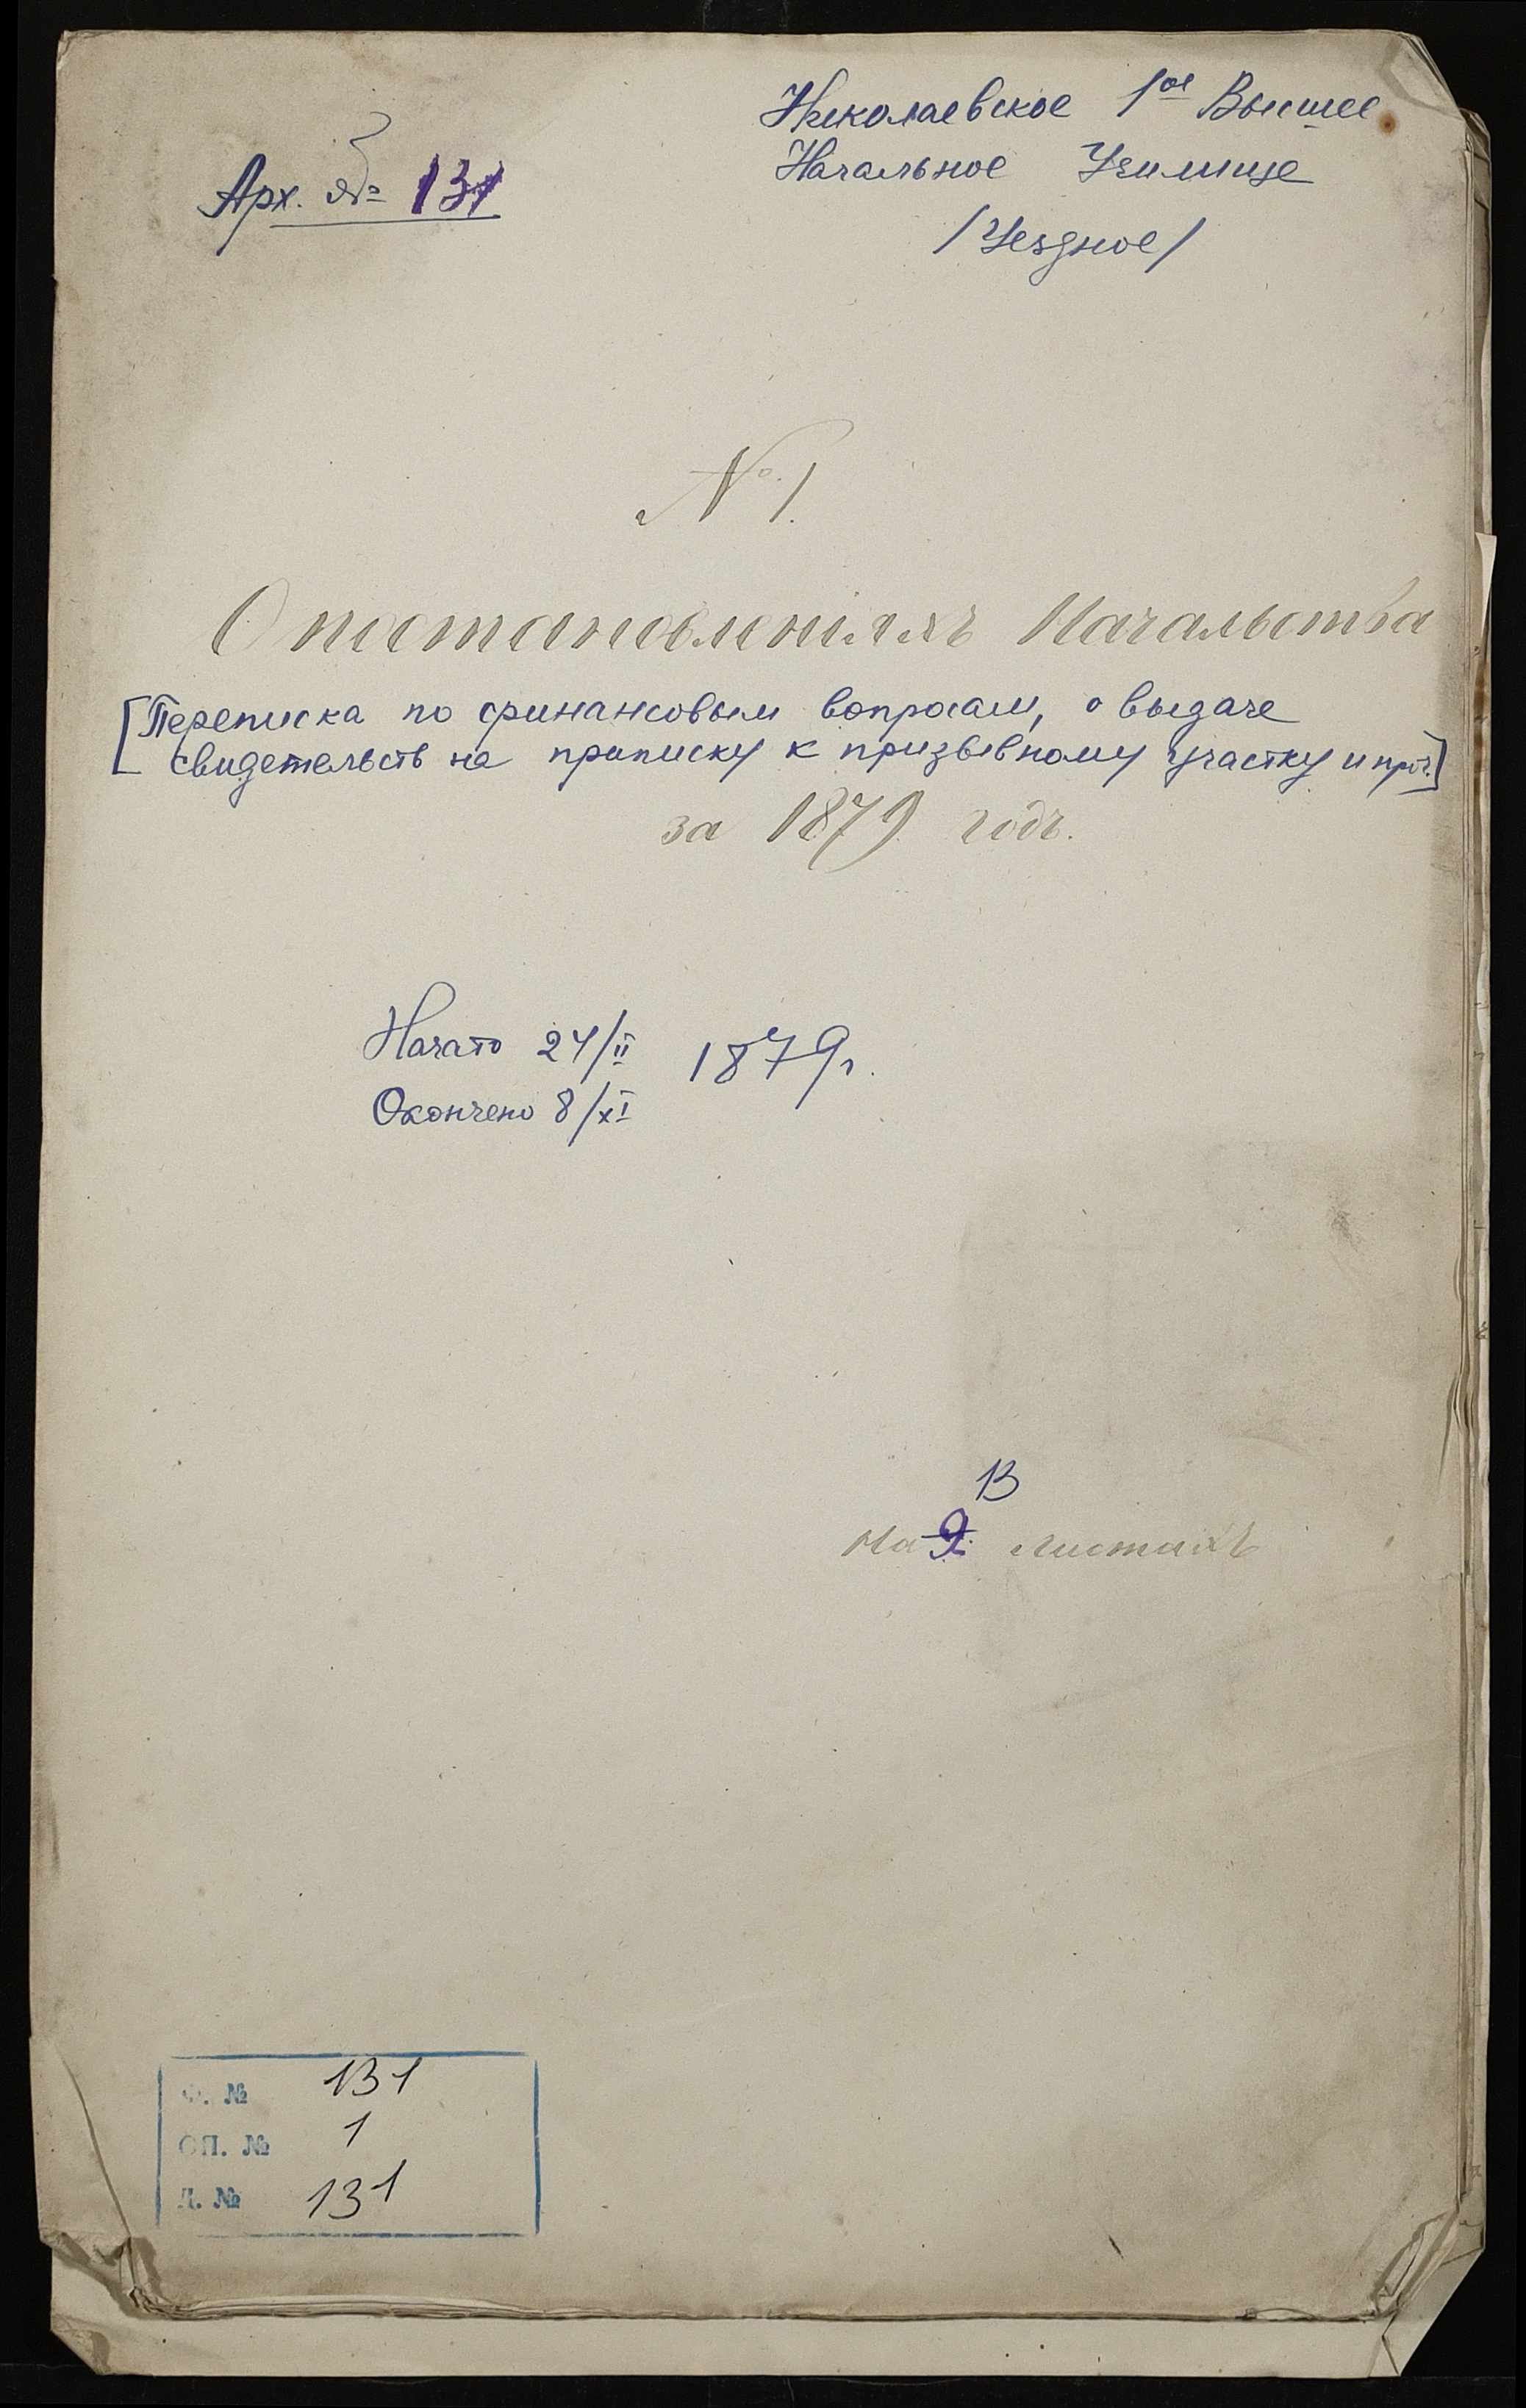 Николаевское 1ое Высшее
Начальное Училище
/Уездное/
Арх. № 131
№ 1.
О постановленіяхъ Начальства
[Переписка по финансовым вопросам, о выдаче
свидетельств на приписку к призывному участку и проч.]
за 1879 годъ.
Начато 24/II 1879г.
Окончено 8/XI
13
На 9 листахъ
Ф. № 131
ОП. № 1
Д. № 131